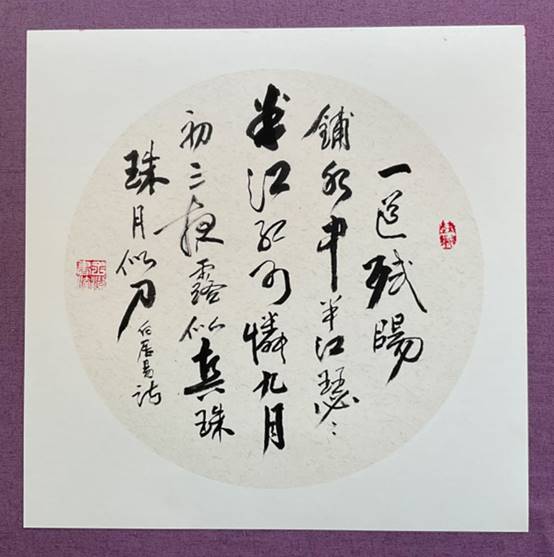 一道残陽
鋪水中半江瑟〻
半江红可憐九月
初三夜露似真珠
珠月似弓白居易詩